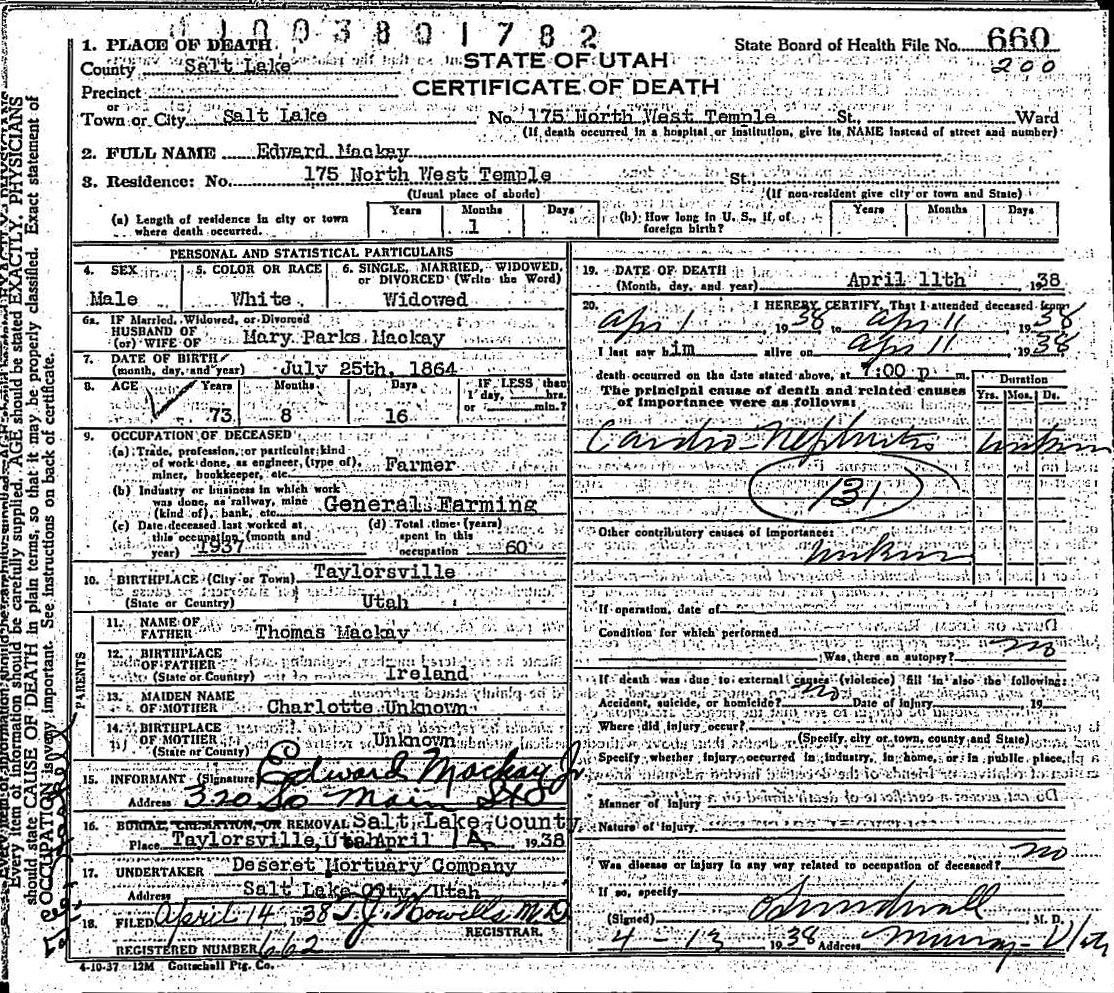 01003801782
1. PLACE OF DEATH
State Board of Health File No. 660
County Salt Lake
STATE OF UTAH
200
Precinct
CERTIFICATE OF DEATH
or
Town or City Salt Lake No. 175 North West Temple St., Ward
(If death occurred in a hospital or institution, give its NAME instead of street and number)
2. FULL NAME Edward Mackay
3. Residence: No. 175 North West Temple St.
(Usual place of abode) (If non-resident give city or town and State)
(a) Length of residence in city or town where death occurred. Years Months 1 Days
(b) How long in U. S., if of foreign birth? Years Months Days
PERSONAL AND STATISTICAL PARTICULARS
4. SEX Male
5. COLOR OR RACE White
6. SINGLE, MARRIED, WIDOWED, OR DIVORCED (Write the Word) Widowed
6a. IF Married, Widowed, or Divorced
HUSBAND OF
(or) WIFE OF Mary Parks Mackay
7. DATE OF BIRTH
(month, day, and year) July 25th, 1864
8. AGE Years 73 Months 8 Days 16
IF LESS than 1 day, hrs. or min.?
9. OCCUPATION OF DECEASED
(a) Trade, profession, or particular kind
of work done, as engineer, (type of),
miner, bookkeeper, etc. Farmer
(b) Industry or business in which work
was done, as railway, mine
(kind of), bank, etc. General Farming
(c) Date deceased last worked at
this occupation (month and
year) 1937
(d) Total time (years)
spent in this
occupation 60
10. BIRTHPLACE (City or Town) Taylorsville
(State or Country) Utah
PARENTS
11. NAME OF
FATHER Thomas Mackay
12. BIRTHPLACE
OF FATHER
(State or Country) Ireland
13. MAIDEN NAME
OF MOTHER Charlotte Unknown
14. BIRTHPLACE
OF MOTHER
(State or County) Unknown
15. INFORMANT (Signature) Edward Mackay Jr
Address 320 So Main St
16. BURIAL, CREMATION, OR REMOVAL Salt Lake County
Place Taylorsville, Utah April 1 1938
17. UNDERTAKER Deseret Mortuary Company
Address Salt Lake City, Utah
18. FILED April 14 1938 T. J. Howells, M.D.
REGISTRAR.
REGISTERED NUMBER 662
4-10-37 12M Gottschall Ptg. Co.
19. DATE OF DEATH
(Month, day, and year) April 11th 1938
20. I HEREBY CERTIFY, That I attended deceased from
Apr 1 1938 to Apr 11 1938
I last saw him alive on Apr 11, 1938
death occurred on the date stated above, at 7:00 p m.
The principal cause of death and related causes
of importance were as follows:
Duration
Yrs. Mos. Ds.
Cardio-Nephritis unknown
131
Other contributory causes of importance:
Unknown
If operation, date of
Condition for which performed
Was there an autopsy? no
If death was due to external causes (violence) fill in also the following:
Accident, suicide, or homicide? no Date of injury 19
Where did injury occur?
(Specify city or town, county and State)
Specify whether injury occurred in industry, in home, or in public place,
Manner of injury
Nature of injury
Was disease or injury in any way related to occupation of deceased? no
If so, specify
(Signed) M. D.
4-13 1938 Address Murray-Utah
Every item of information should be carefully supplied. AGE should be stated EXACTLY. PHYSICIANS
should state CAUSE OF DEATH in plain terms, so that it may be properly classified. Exact statement of
OCCUPATION is very important. See instructions on back of certificate.